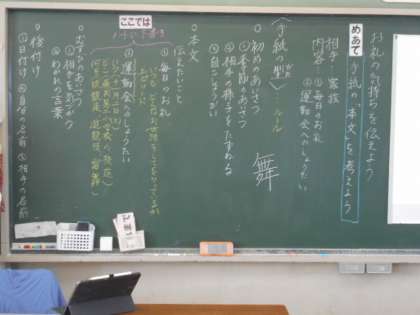 お礼の気持ちを伝えよう
めあて 手紙の「本文」を考えよう
相手…家族
内容…①毎日のお礼
②運動会へのしょうたい
〈手紙の型〉…ルール
○初めのあいさつ
①季節のあいさつ
②相手の様子をたずねる
③自こしょうかい
舞
○本文
伝えたいこと
①毎日のお礼
②運動会のしょうたい
ここでは
○むすびのあいさつ
①相手を気づかう
②わかれの言葉
○後付け
①日付け ②自分の名前 ③相手の名前